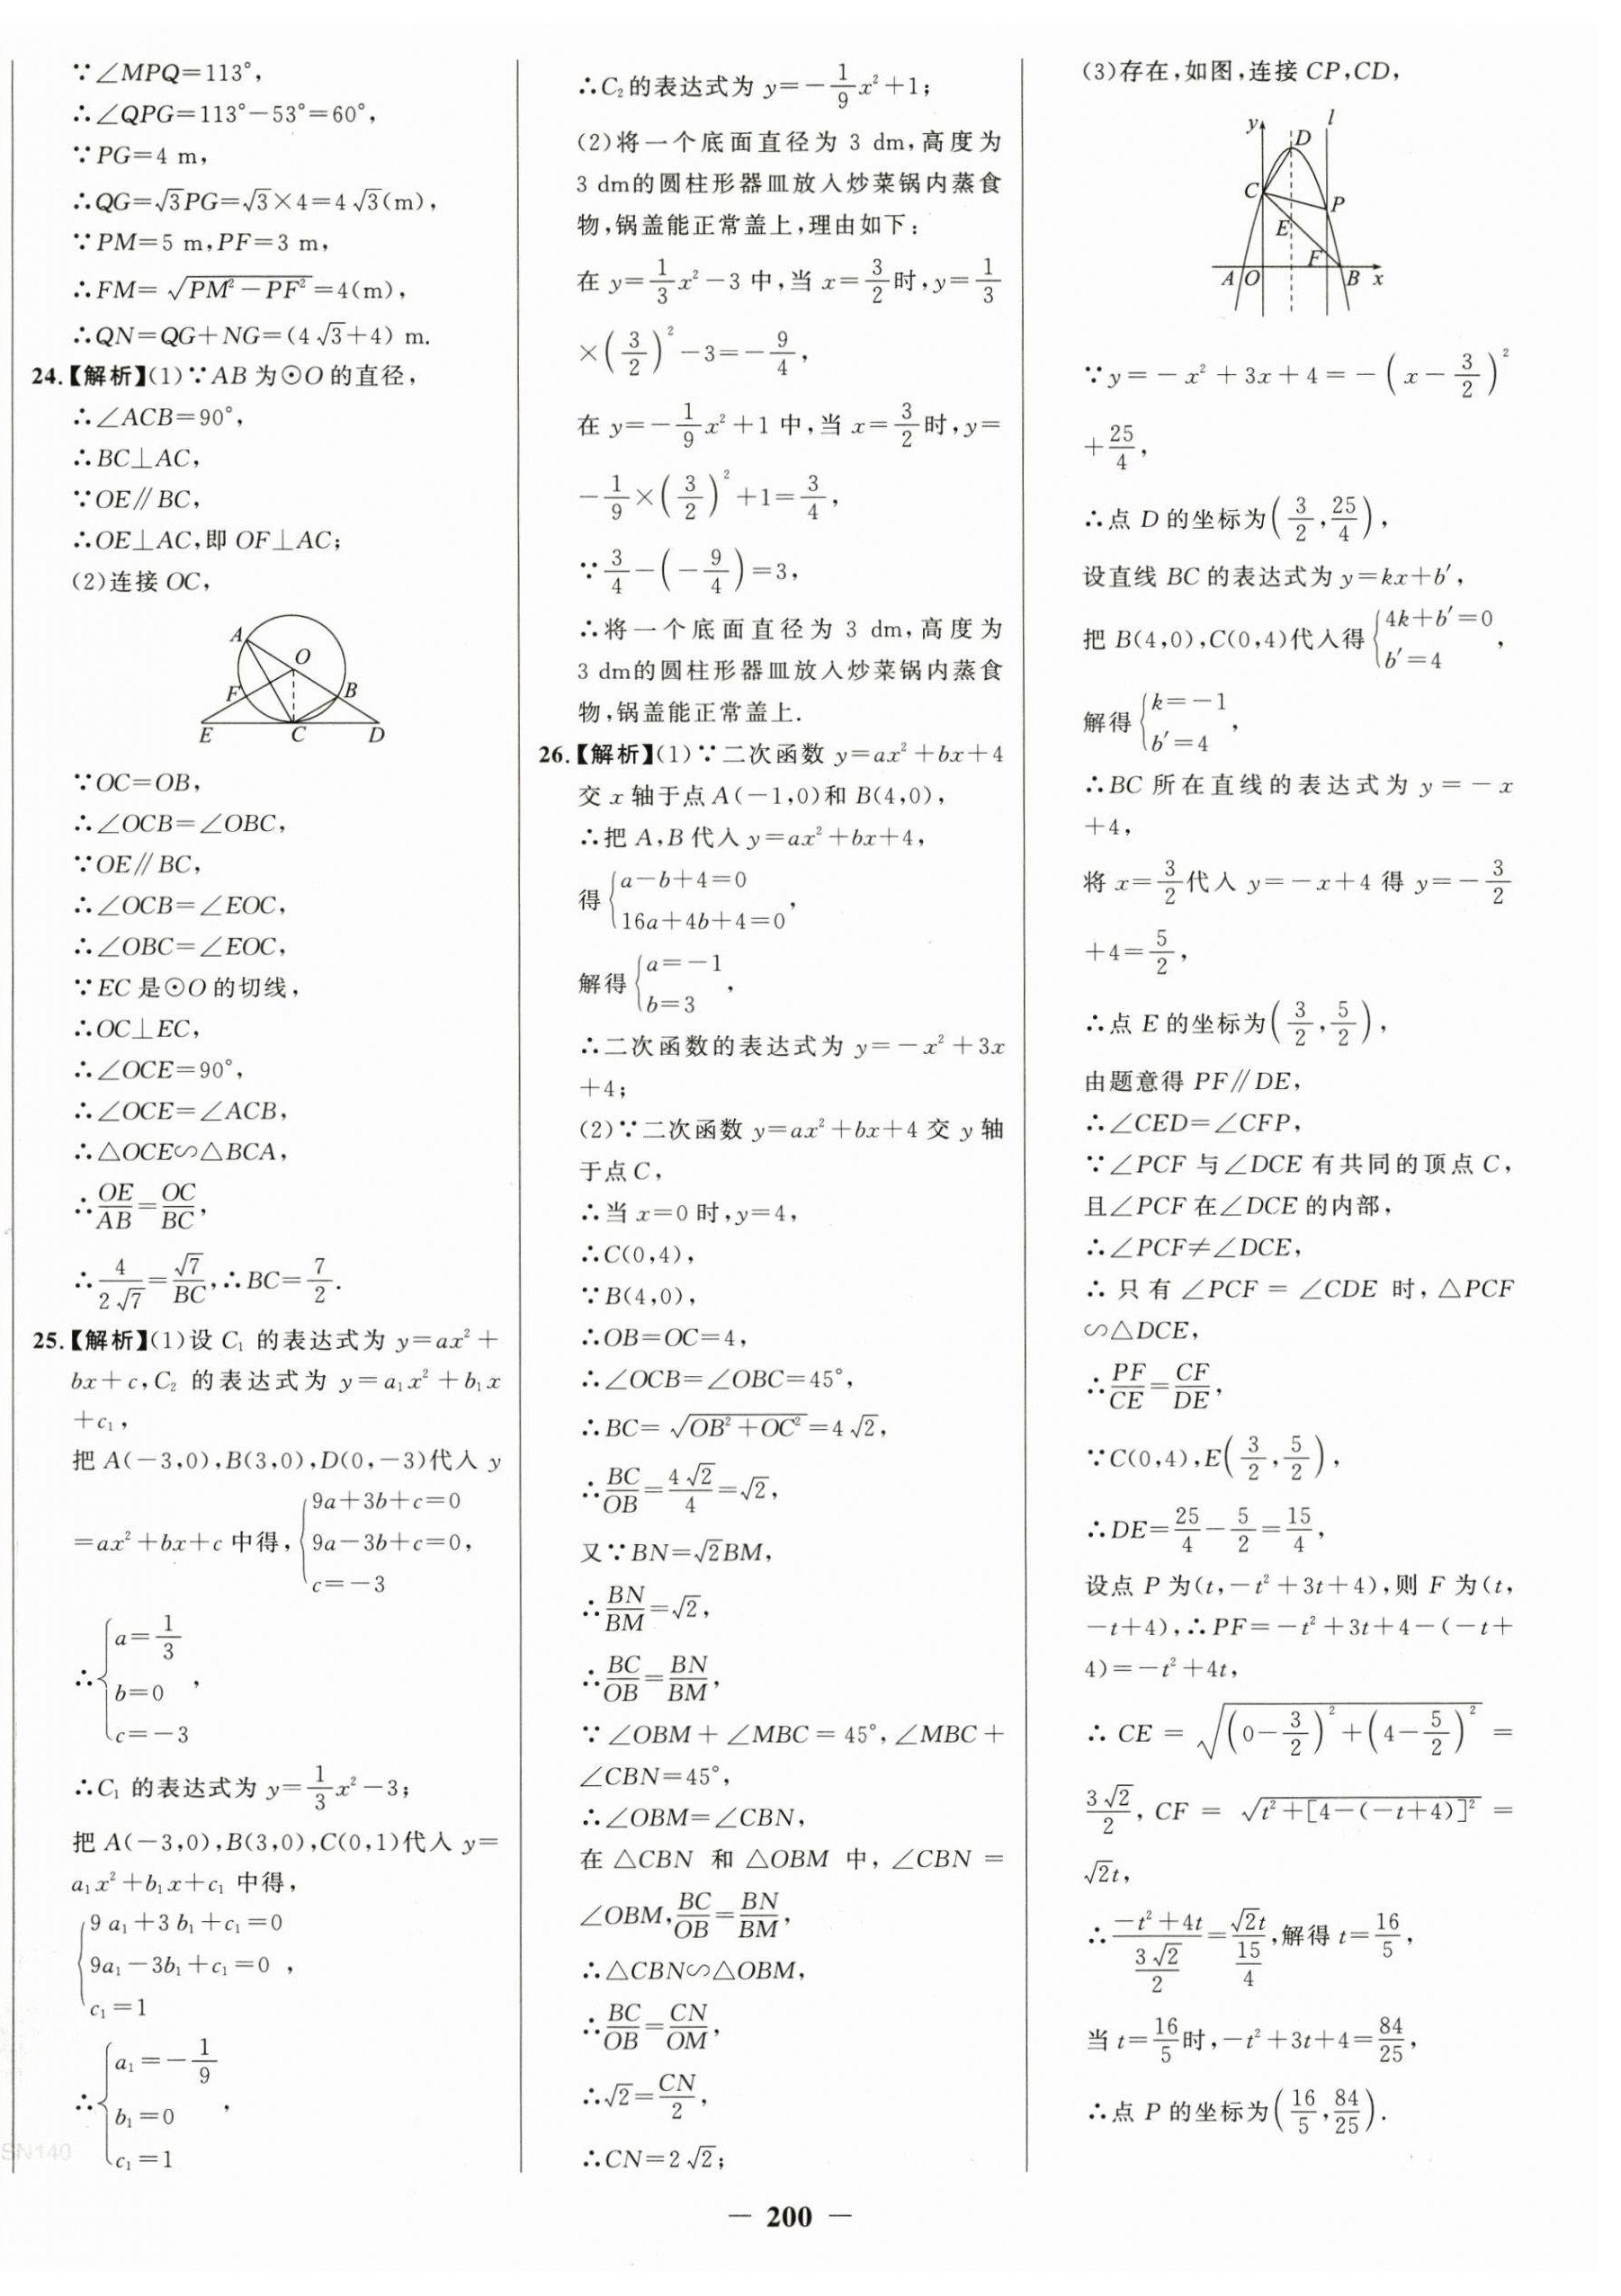 ∵∠MPQ=113°,
∴∠QPG=113°-53°=60°,
∵PG=4 m,
∴QG=√3PG=√3×4=4√3(m),
∵PM=5 m,PF=3 m,
∴FM=√(PM²-PF²)=4(m),
∴QN=QG+NG=(4√3+4) m.
24.【解析】(1)∵AB为⊙O的直径,
∴∠ACB=90°,
∴BC⊥AC,
∵OE∥BC,
∴OE⊥AC,即OF⊥AC;
(2)连接OC,
A
O
F
B
E
C
D
∵OC=OB,
∴∠OCB=∠OBC,
∵OE∥BC,
∴∠OCB=∠EOC,
∴∠OBC=∠EOC,
∵EC是⊙O的切线,
∴OC⊥EC,
∴∠OCE=90°,
∴∠OCE=∠ACB,
∴△OCE∽△BCA,
∴OE/AB=OC/BC,
∴4/(2√7)=√7/BC,∴BC=7/2.
25.【解析】(1)设C₁的表达式为y=ax²+
bx+c,C₂的表达式为y=a₁x²+b₁x
+c₁,
把A(-3,0),B(3,0),D(0,-3)代入y
=ax²+bx+c中得,{9a+3b+c=0
9a-3b+c=0,
c=-3
∴{a=1/3
b=0,
c=-3
∴C₁的表达式为y=1/3x²-3;
把A(-3,0),B(3,0),C(0,1)代入y=
a₁x²+b₁x+c₁中得,
{9a₁+3b₁+c₁=0
9a₁-3b₁+c₁=0,
c₁=1
∴{a₁=-1/9
b₁=0,
c₁=1
SN140
∴C₂的表达式为y=-1/9x²+1;
(2)将一个底面直径为3 dm,高度为
3 dm的圆柱形器皿放入炒菜锅内蒸食
物,锅盖能正常盖上,理由如下:
在y=1/3x²-3中,当x=3/2时,y=1/3
×(3/2)²-3=-9/4,
在y=-1/9x²+1中,当x=3/2时,y=
-1/9×(3/2)²+1=3/4,
∵3/4-(-9/4)=3,
∴将一个底面直径为3 dm,高度为
3 dm的圆柱形器皿放入炒菜锅内蒸食
物,锅盖能正常盖上.
26.【解析】(1)∵二次函数y=ax²+bx+4
交x轴于点A(-1,0)和B(4,0),
∴把A,B代入y=ax²+bx+4,
得{a-b+4=0
16a+4b+4=0,
解得{a=-1
b=3,
∴二次函数的表达式为y=-x²+3x
+4;
(2)∵二次函数y=ax²+bx+4交y轴
于点C,
∴当x=0时,y=4,
∴C(0,4),
∵B(4,0),
∴OB=OC=4,
∴∠OCB=∠OBC=45°,
∴BC=√(OB²+OC²)=4√2,
∴BC/OB=4√2/4=√2,
又∵BN=√2BM,
∴BN/BM=√2,
∴BC/OB=BN/BM,
∵∠OBM+∠MBC=45°,∠MBC+
∠CBN=45°,
∴∠OBM=∠CBN,
在△CBN和△OBM中,∠CBN=
∠OBM,BC/OB=BN/BM,
∴△CBN∽△OBM,
∴BC/OB=CN/OM,
∴√2=CN/2,
∴CN=2√2;
(3)存在,如图,连接CP,CD,
y
l
D
C
P
E
F
A
O
B
x
∵y=-x²+3x+4=-(x-3/2)²
+25/4,
∴点D的坐标为(3/2,25/4),
设直线BC的表达式为y=kx+b′,
把B(4,0),C(0,4)代入得{4k+b′=0
b′=4,
解得{k=-1
b′=4,
∴BC所在直线的表达式为y=-x
+4,
将x=3/2代入y=-x+4得y=-3/2
+4=5/2,
∴点E的坐标为(3/2,5/2),
由题意得PF∥DE,
∴∠CED=∠CFP,
∵∠PCF与∠DCE有共同的顶点C,
且∠PCF在∠DCE的内部,
∴∠PCF≠∠DCE,
∴只有∠PCF=∠CDE时,△PCF
∽△DCE,
∴PF/CE=CF/DE,
∵C(0,4),E(3/2,5/2),
∴DE=25/4-5/2=15/4,
设点P为(t,-t²+3t+4),则F为(t,
-t+4),∴PF=-t²+3t+4-(-t+
4)=-t²+4t,
∴CE=√((0-3/2)²+(4-5/2)²)=
3√2/2,CF=√(t²+[4-(-t+4)]²)=
√2t,
∴(-t²+4t)/(3√2/2)=√2t/(15/4),解得t=16/5,
当t=16/5时,-t²+3t+4=84/25,
∴点P的坐标为(16/5,84/25).
— 200 —